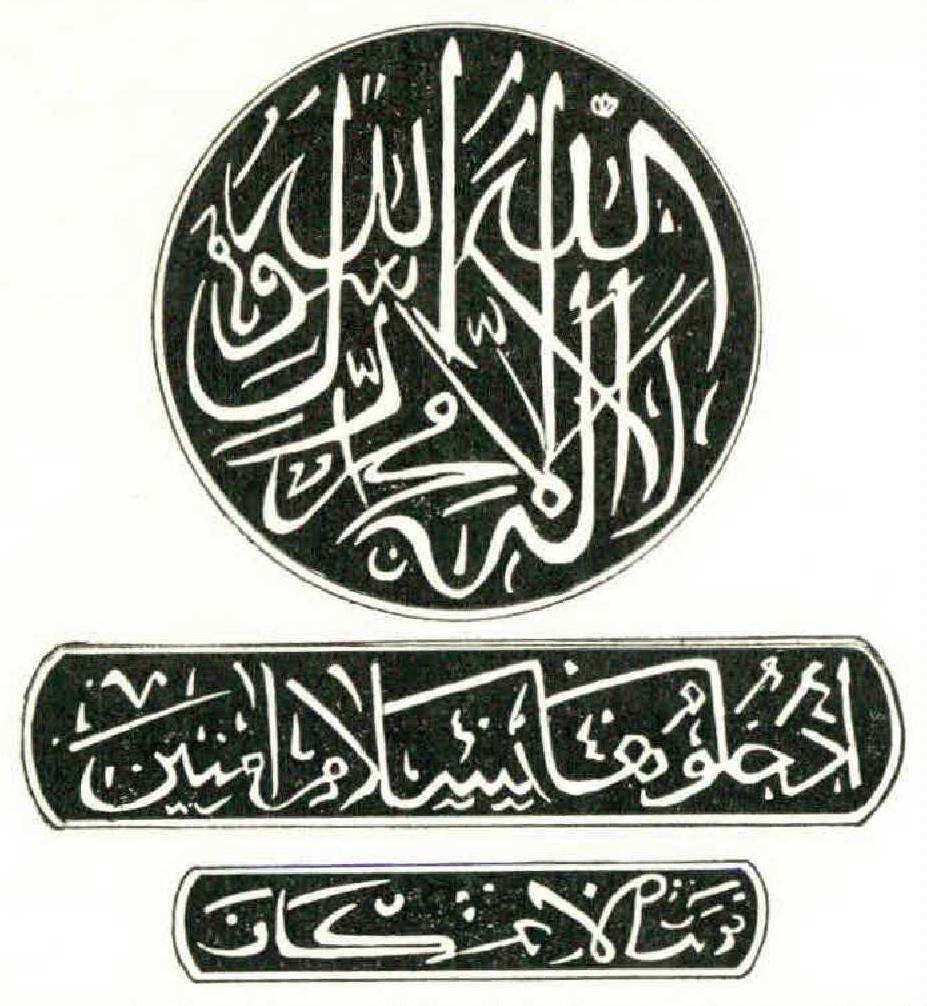 لا إله إلا الله محمد رسول الله
ادخلوها بسلام امنين